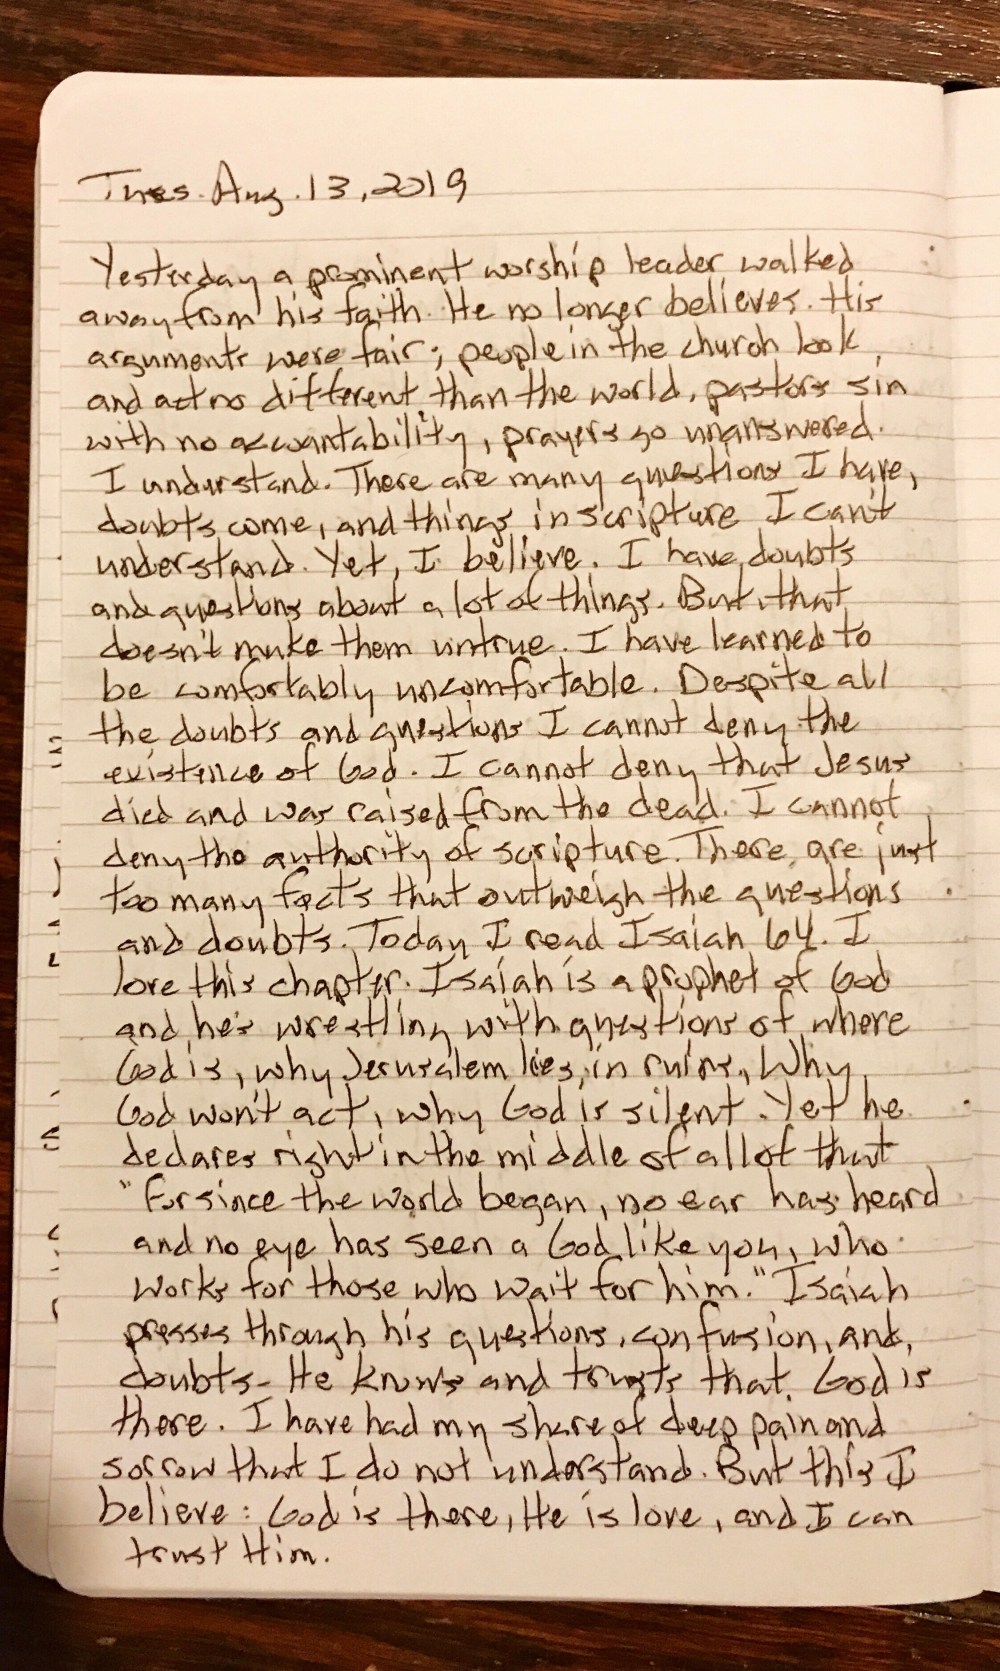 Tues. Aug. 13, 2019
Yesterday a prominent worship leader walked
away from his faith. He no longer believes. His
arguments were fair; people in the church look
and act no different than the world, pastors sin
with no accountability, prayers go unanswered.
I understand. There are many questions I have,
doubts come, and things in scripture I can't
understand. Yet, I believe. I have doubts
and questions about a lot of things. But, that
doesn't make them untrue. I have learned to
be comfortably uncomfortable. Despite all
the doubts and questions I cannot deny the
existence of God. I cannot deny that Jesus
died and was raised from the dead. I cannot
deny the authority of scripture. There are just
too many facts that outweigh the questions
and doubts. Today I read Isaiah 64. I
love this chapter. Isaiah is a prophet of God
and he's wrestling with questions of where
God is, why Jerusalem lies in ruins, Why
God won't act, why God is silent. Yet he
declares right in the middle of all of that
"For since the world began, no ear has heard
and no eye has seen a God like you, who
works for those who wait for him." Isaiah
presses through his questions, confusion, and,
doubts - He knows and trusts that God is
there. I have had my share of deep pain and
sorrow that I do not understand. But this I
believe: God is there, He is love, and I can
trust Him.